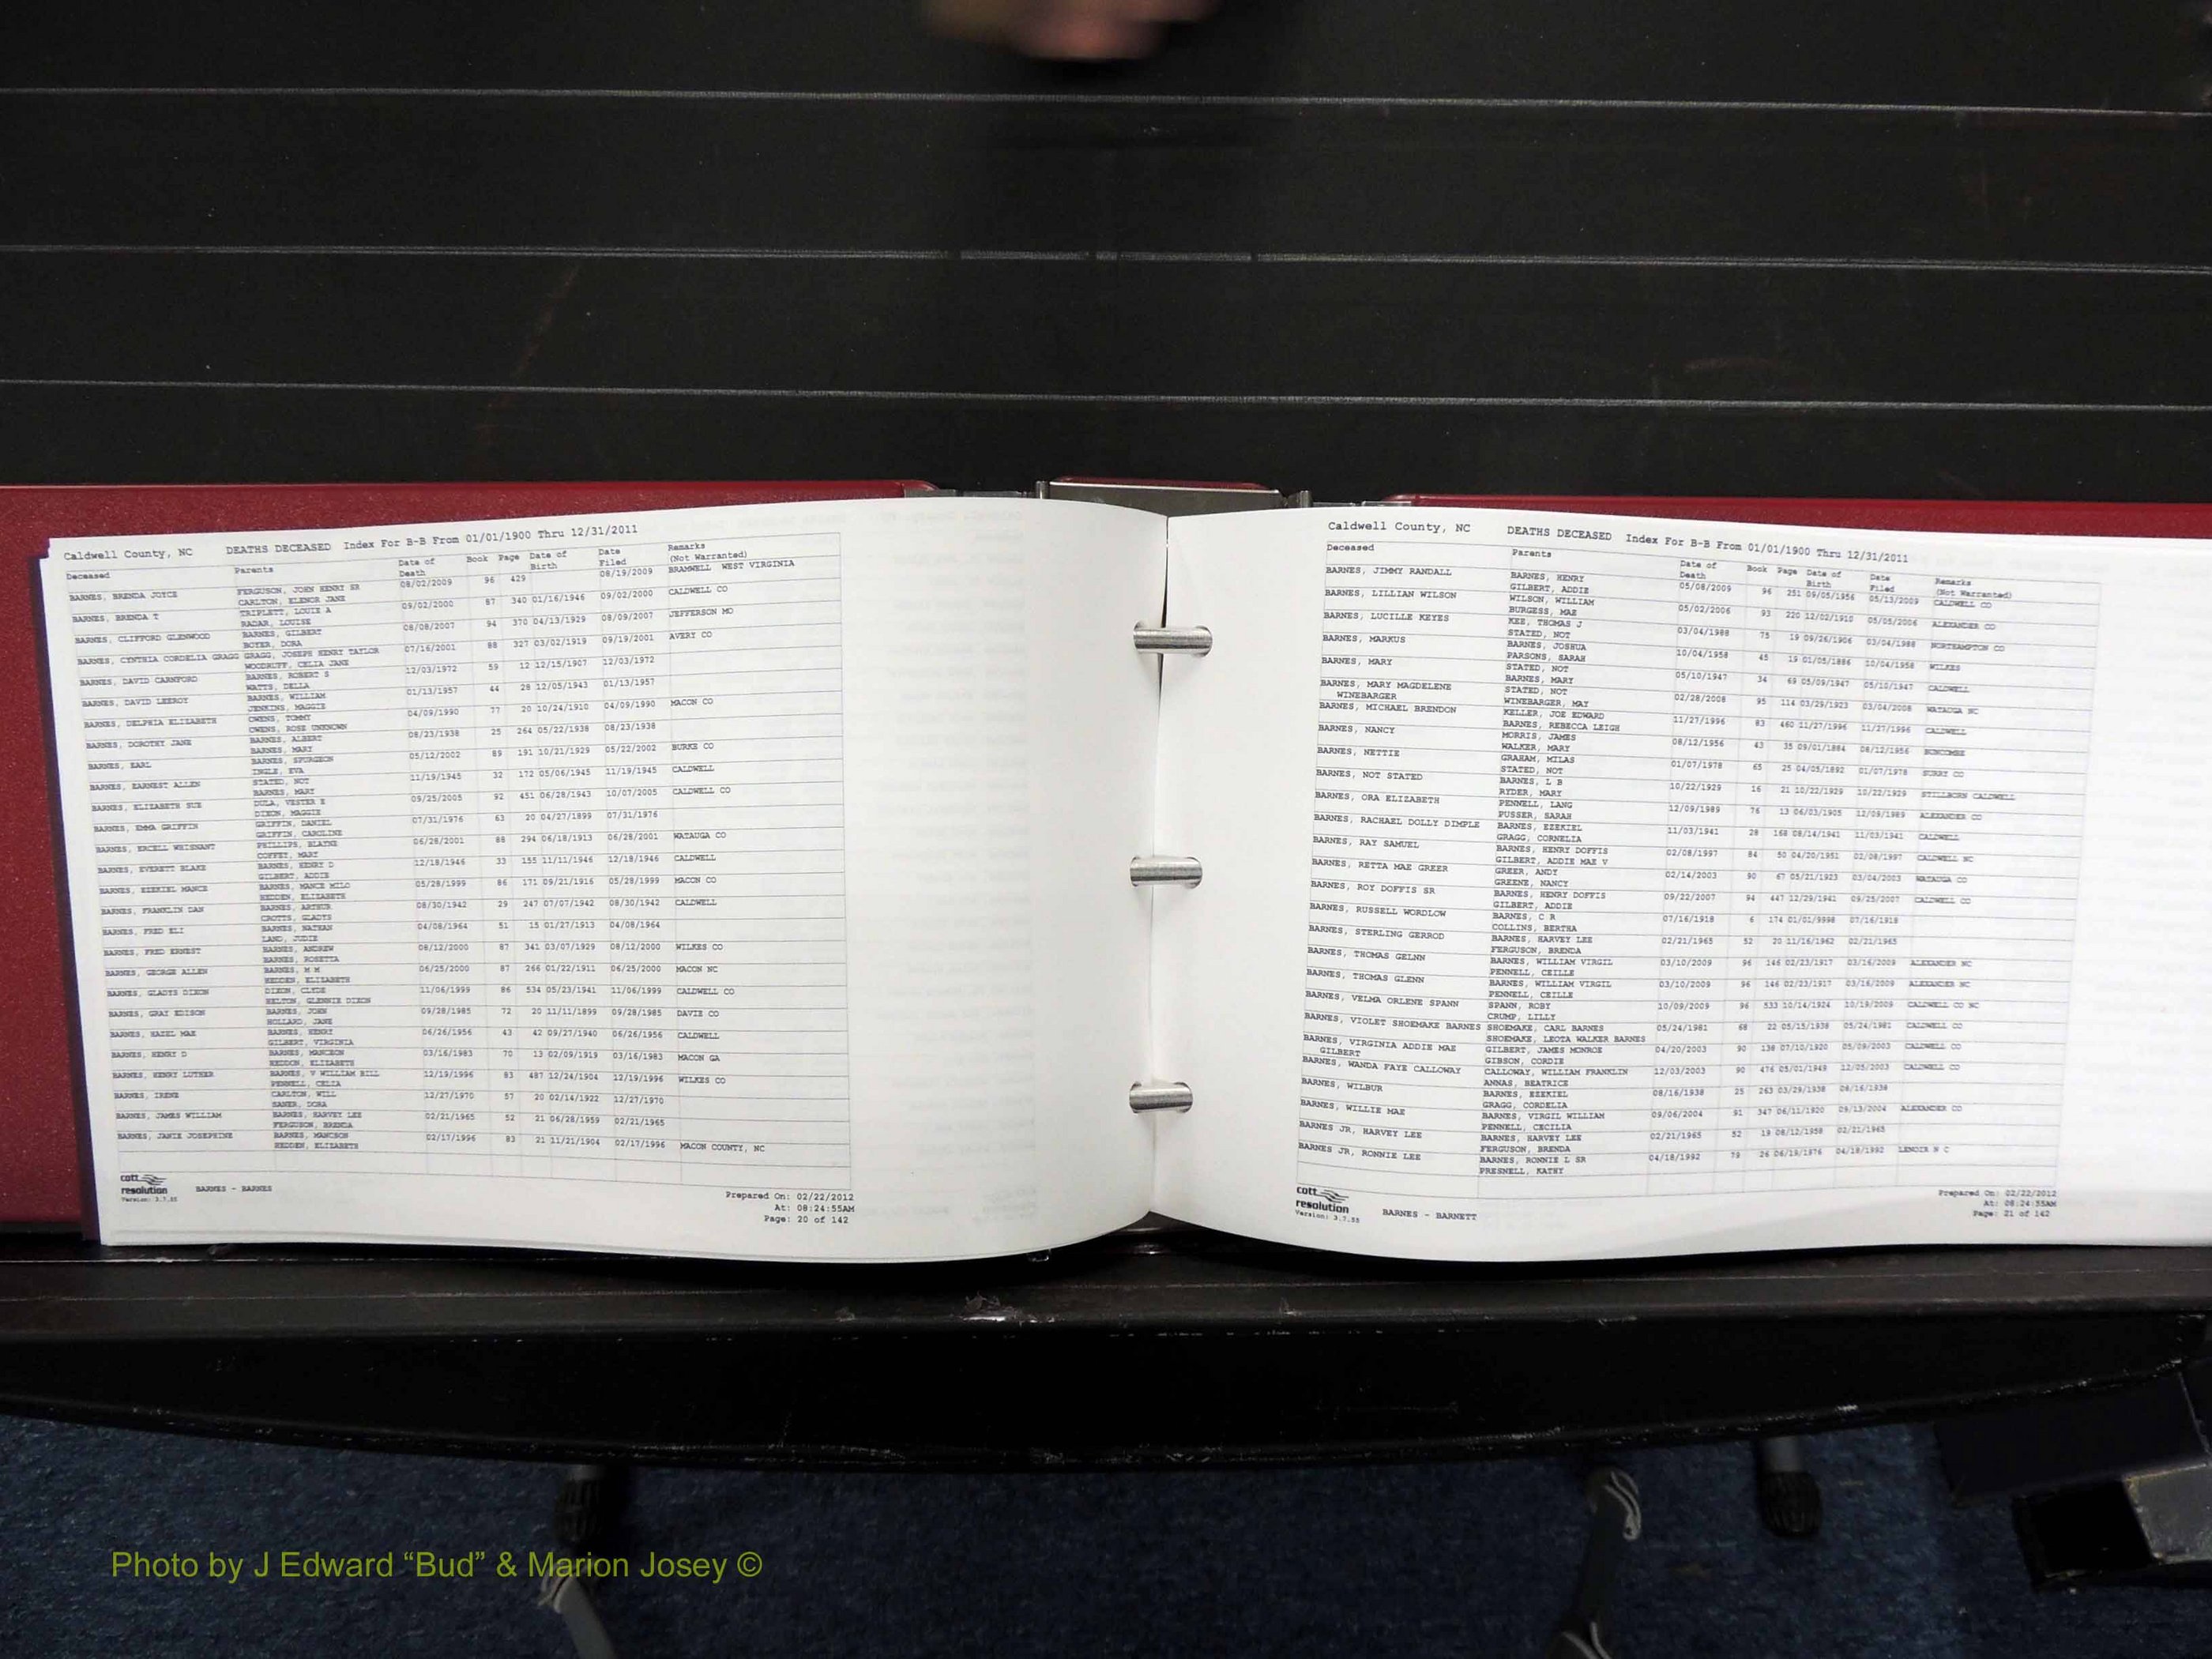 Caldwell County, NC DEATHS DECEASED Index For B-B From 01/01/1900 Thru 12/31/2011
Deceased Parents Date of Death Book Page Date of Birth Date Filed Remarks (Not Warranted)
BARNES, BRENDA JOYCE FERGUSON, JOHN HENRY SR 08/02/2009 96 429 08/19/2009 BRAMWELL WEST VIRGINIA
CARLTON, ELENOR JANE
BARNES, BRENDA T TRIPLETT, LOUIE A 09/02/2000 87 340 01/16/1946 09/02/2000 CALDWELL CO
RADAR, LOUISE
BARNES, CLIFFORD GLENWOOD BARNES, GILBERT 08/08/2007 94 370 04/13/1929 08/09/2007 JEFFERSON MO
BOYER, DORA
BARNES, CYNTHIA CORDELIA GRAGG GRAGG, JOSEPH HENRY TAYLOR 07/16/2001 88 327 03/02/1919 09/19/2001 AVERY CO
WOODRUFF, CELIA JANE
BARNES, DAVID CARNFORD BARNES, ROBERT S 12/03/1972 59 12 12/15/1907 12/03/1972
WATTS, DELLA
BARNES, DAVID LEEROY BARNES, WILLIAM 01/13/1957 44 28 12/05/1943 01/13/1957
JENKINS, MAGGIE
BARNES, DELPHIA ELIZABETH OWENS, TOMMY 04/09/1990 77 20 10/24/1910 04/09/1990 MACON CO
OWENS, ROSE UNKNOWN
BARNES, DOROTHY JANE BARNES, ALBERT 08/23/1938 25 264 05/22/1938 08/23/1938
BARNES, MARY
BARNES, EARL BARNES, SPURGEON 05/12/2002 89 191 10/21/1929 05/22/2002 BURKE CO
INGLE, EVA
BARNES, EARNEST ALLEN STATED, NOT 11/19/1945 32 172 05/06/1945 11/19/1945 CALDWELL
BARNES, MARY
BARNES, ELIZABETH SUE DULA, VESTER E 09/25/2005 92 451 06/28/1943 10/07/2005 CALDWELL CO
DIXON, MAGGIE
BARNES, EMMA GRIFFIN GRIFFIN, DANIEL 07/31/1976 63 20 04/27/1899 07/31/1976
GRIFFIN, CAROLINE
BARNES, ERCELL WHISNANT PHILLIPS, BLAINE 06/28/2001 88 294 06/18/1913 06/28/2001 WATAUGA CO
COFFEY, MARY
BARNES, EVERETT BLAKE BARNES, HENRY D 12/18/1946 33 155 11/11/1946 12/18/1946 CALDWELL
GILBERT, ADDIE
BARNES, EZEKIEL MANCE BARNES, MANCE MILO 05/28/1999 86 171 09/21/1916 05/28/1999 MACON CO
HEDDEN, ELIZABETH
BARNES, FRANKLIN DAN BARNES, ARTHUR 08/30/1942 29 247 07/07/1942 08/30/1942 CALDWELL
CROTTS, GLADYS
BARNES, FRED ELI BARNES, NATHAN 04/08/1964 51 15 01/27/1913 04/08/1964
LAND, JUDIE
BARNES, FRED ERNEST BARNES, ANDREW 08/12/2000 87 341 03/07/1929 08/12/2000 WILKES CO
BARNES, ROSETTA
BARNES, GEORGE ALLEN BARNES, M M 06/25/2000 87 266 01/22/1911 06/25/2000 MACON NC
HEDDEN, ELIZABETH
BARNES, GLADYS DIXON DIXON, CLYDE 11/06/1999 86 534 05/23/1941 11/06/1999 CALDWELL CO
HELTON, GLENNIE DIXON
BARNES, GRAY EDISON BARNES, JOHN 09/28/1985 72 20 11/11/1899 09/28/1985 DAVIE CO
HOLLARD, JANE
BARNES, HAZEL MAE BARNES, HENRY 06/26/1956 43 42 09/27/1940 06/26/1956 CALDWELL
GILBERT, VIRGINIA
BARNES, HENRY D BARNES, MANCEON 03/16/1983 70 13 02/09/1919 03/16/1983 MACON GA
HEDDON, ELIZABETH
BARNES, HENRY LUTHER BARNES, V WILLIAM BILL 12/19/1996 83 487 12/24/1904 12/19/1996 WILKES CO
PENNELL, CELIA
BARNES, IRENE CARLTON, WILL 12/27/1970 57 20 02/14/1922 12/27/1970
SANER, DORA
BARNES, JAMES WILLIAM BARNES, HARVEY LEE 02/21/1965 52 21 06/28/1959 02/21/1965
FERGUSON, BRENDA
BARNES, JANIE JOSEPHINE BARNES, MANCSON 02/17/1996 83 21 11/21/1904 02/17/1996 MACON COUNTY, NC
HEDDEN, ELIZABETH
cott
resolution BARNES - BARNES
Version: 3.7.55
Prepared On: 02/22/2012
At: 08:24:55AM
Page: 20 of 142
Caldwell County, NC DEATHS DECEASED Index For B-B From 01/01/1900 Thru 12/31/2011
Deceased Parents Date of Death Book Page Date of Birth Date Filed Remarks (Not Warranted)
BARNES, JIMMY RANDALL BARNES, HENRY 05/08/2009 96 251 09/05/1956 05/13/2009 CALDWELL CO
GILBERT, ADDIE
BARNES, LILLIAN WILSON WILSON, WILLIAM 05/02/2006 93 220 12/02/1910 05/05/2006 ALEXANDER CO
BURGESS, MAE
BARNES, LUCILLE KEYES KEE, THOMAS J 03/04/1988 75 19 09/26/1906 03/04/1988 NORTHAMPTON CO
STATED, NOT
BARNES, MARKUS BARNES, JOSHUA 10/04/1958 45 19 01/05/1886 10/04/1958 WILKES
PARSONS, SARAH
BARNES, MARY STATED, NOT 05/10/1947 34 69 05/09/1947 05/10/1947 CALDWELL
BARNES, MARY
BARNES, MARY MAGDELENE STATED, NOT 02/28/2008 95 114 03/29/1923 03/04/2008 WATAUGA NC
WINEBARGER WINEBARGER, MAY
BARNES, MICHAEL BRENDON KELLER, JOE EDWARD 11/27/1996 83 460 11/27/1996 11/27/1996 CALDWELL
BARNES, REBECCA LEIGH
BARNES, NANCY MORRIS, JAMES 08/12/1956 43 35 09/01/1884 08/12/1956 BUNCOMBE
WALKER, MARY
BARNES, NETTIE GRAHAM, MILAS 01/07/1978 65 25 04/05/1892 01/07/1978 SURRY CO
STATED, NOT
BARNES, NOT STATED BARNES, L B 10/22/1929 16 21 10/22/1929 10/22/1929 STILLBORN CALDWELL
RYDER, MARY
BARNES, ORA ELIZABETH PENNELL, LANG 12/09/1989 76 13 06/03/1905 12/09/1989 ALEXANDER CO
PUSSER, SARAH
BARNES, RACHAEL DOLLY DIMPLE BARNES, EZEKIEL 11/03/1941 28 168 08/14/1941 11/03/1941 CALDWELL
GRAGG, CORNELIA
BARNES, RAY SAMUEL BARNES, HENRY DOFFIS 02/08/1997 84 50 04/20/1951 02/08/1997 CALDWELL NC
GILBERT, ADDIE MAE V
BARNES, RETTA MAE GREER GREER, ANDY 02/14/2003 90 67 05/21/1923 03/04/2003 WATAUGA CO
GREENE, NANCY
BARNES, ROY DOFFIS SR BARNES, HENRY DOFFIS 09/22/2007 94 447 12/29/1941 09/25/2007 CALDWELL CO
GILBERT, ADDIE
BARNES, RUSSELL WORDLOW BARNES, C R 07/16/1918 6 174 01/01/9998 07/16/1918
COLLINS, BERTHA
BARNES, STERLING GERROD BARNES, HARVEY LEE 02/21/1965 52 20 11/16/1962 02/21/1965
FERGUSON, BRENDA
BARNES, THOMAS GELNN BARNES, WILLIAM VIRGIL 03/10/2009 96 146 02/23/1917 03/16/2009 ALEXANDER NC
PENNELL, CEILLE
BARNES, THOMAS GLENN BARNES, WILLIAM VIRGIL 03/10/2009 96 146 02/23/1917 03/16/2009 ALEXANDER NC
PENNELL, CEILLE
BARNES, VELMA ORLENE SPANN SPANN, ROBY 10/09/2009 96 533 10/14/1924 10/19/2009 CALDWELL CO NC
CRUMP, LILLY
BARNES, VIOLET SHOEMAKE BARNES SHOEMAKE, CARL BARNES 05/24/1981 68 22 05/15/1938 05/24/1981 CALDWELL CO
SHOEMAKE, LEOTA WALKER BARNES
BARNES, VIRGINIA ADDIE MAE GILBERT, JAMES MONROE 04/20/2003 90 138 07/10/1920 05/09/2003 CALDWELL CO
GILBERT GIBSON, CORDIE
BARNES, WANDA FAYE CALLOWAY CALLOWAY, WILLIAM FRANKLIN 12/03/2003 90 476 05/01/1949 12/05/2003 CALDWELL CO
ANNAS, BEATRICE
BARNES, WILBUR BARNES, EZEKIEL 08/16/1938 25 263 03/29/1938 08/16/1938
GRAGG, CORDELIA
BARNES, WILLIE MAE BARNES, VIRGIL WILLIAM 09/06/2004 91 347 06/11/1920 09/13/2004 ALEXANDER CO
PENNELL, CECILIA
BARNES JR, HARVEY LEE BARNES, HARVEY LEE 02/21/1965 52 19 08/12/1958 02/21/1965
FERGUSON, BRENDA
BARNES JR, RONNIE LEE BARNES, RONNIE L SR 04/18/1992 79 26 06/19/1976 04/18/1992 LENOIR N C
PRESNELL, KATHY
cott
resolution BARNES - BARNETT
Version: 3.7.55
Prepared On: 02/22/2012
At: 08:24:55AM
Page: 21 of 142
Photo by J Edward “Bud” & Marion Josey ©